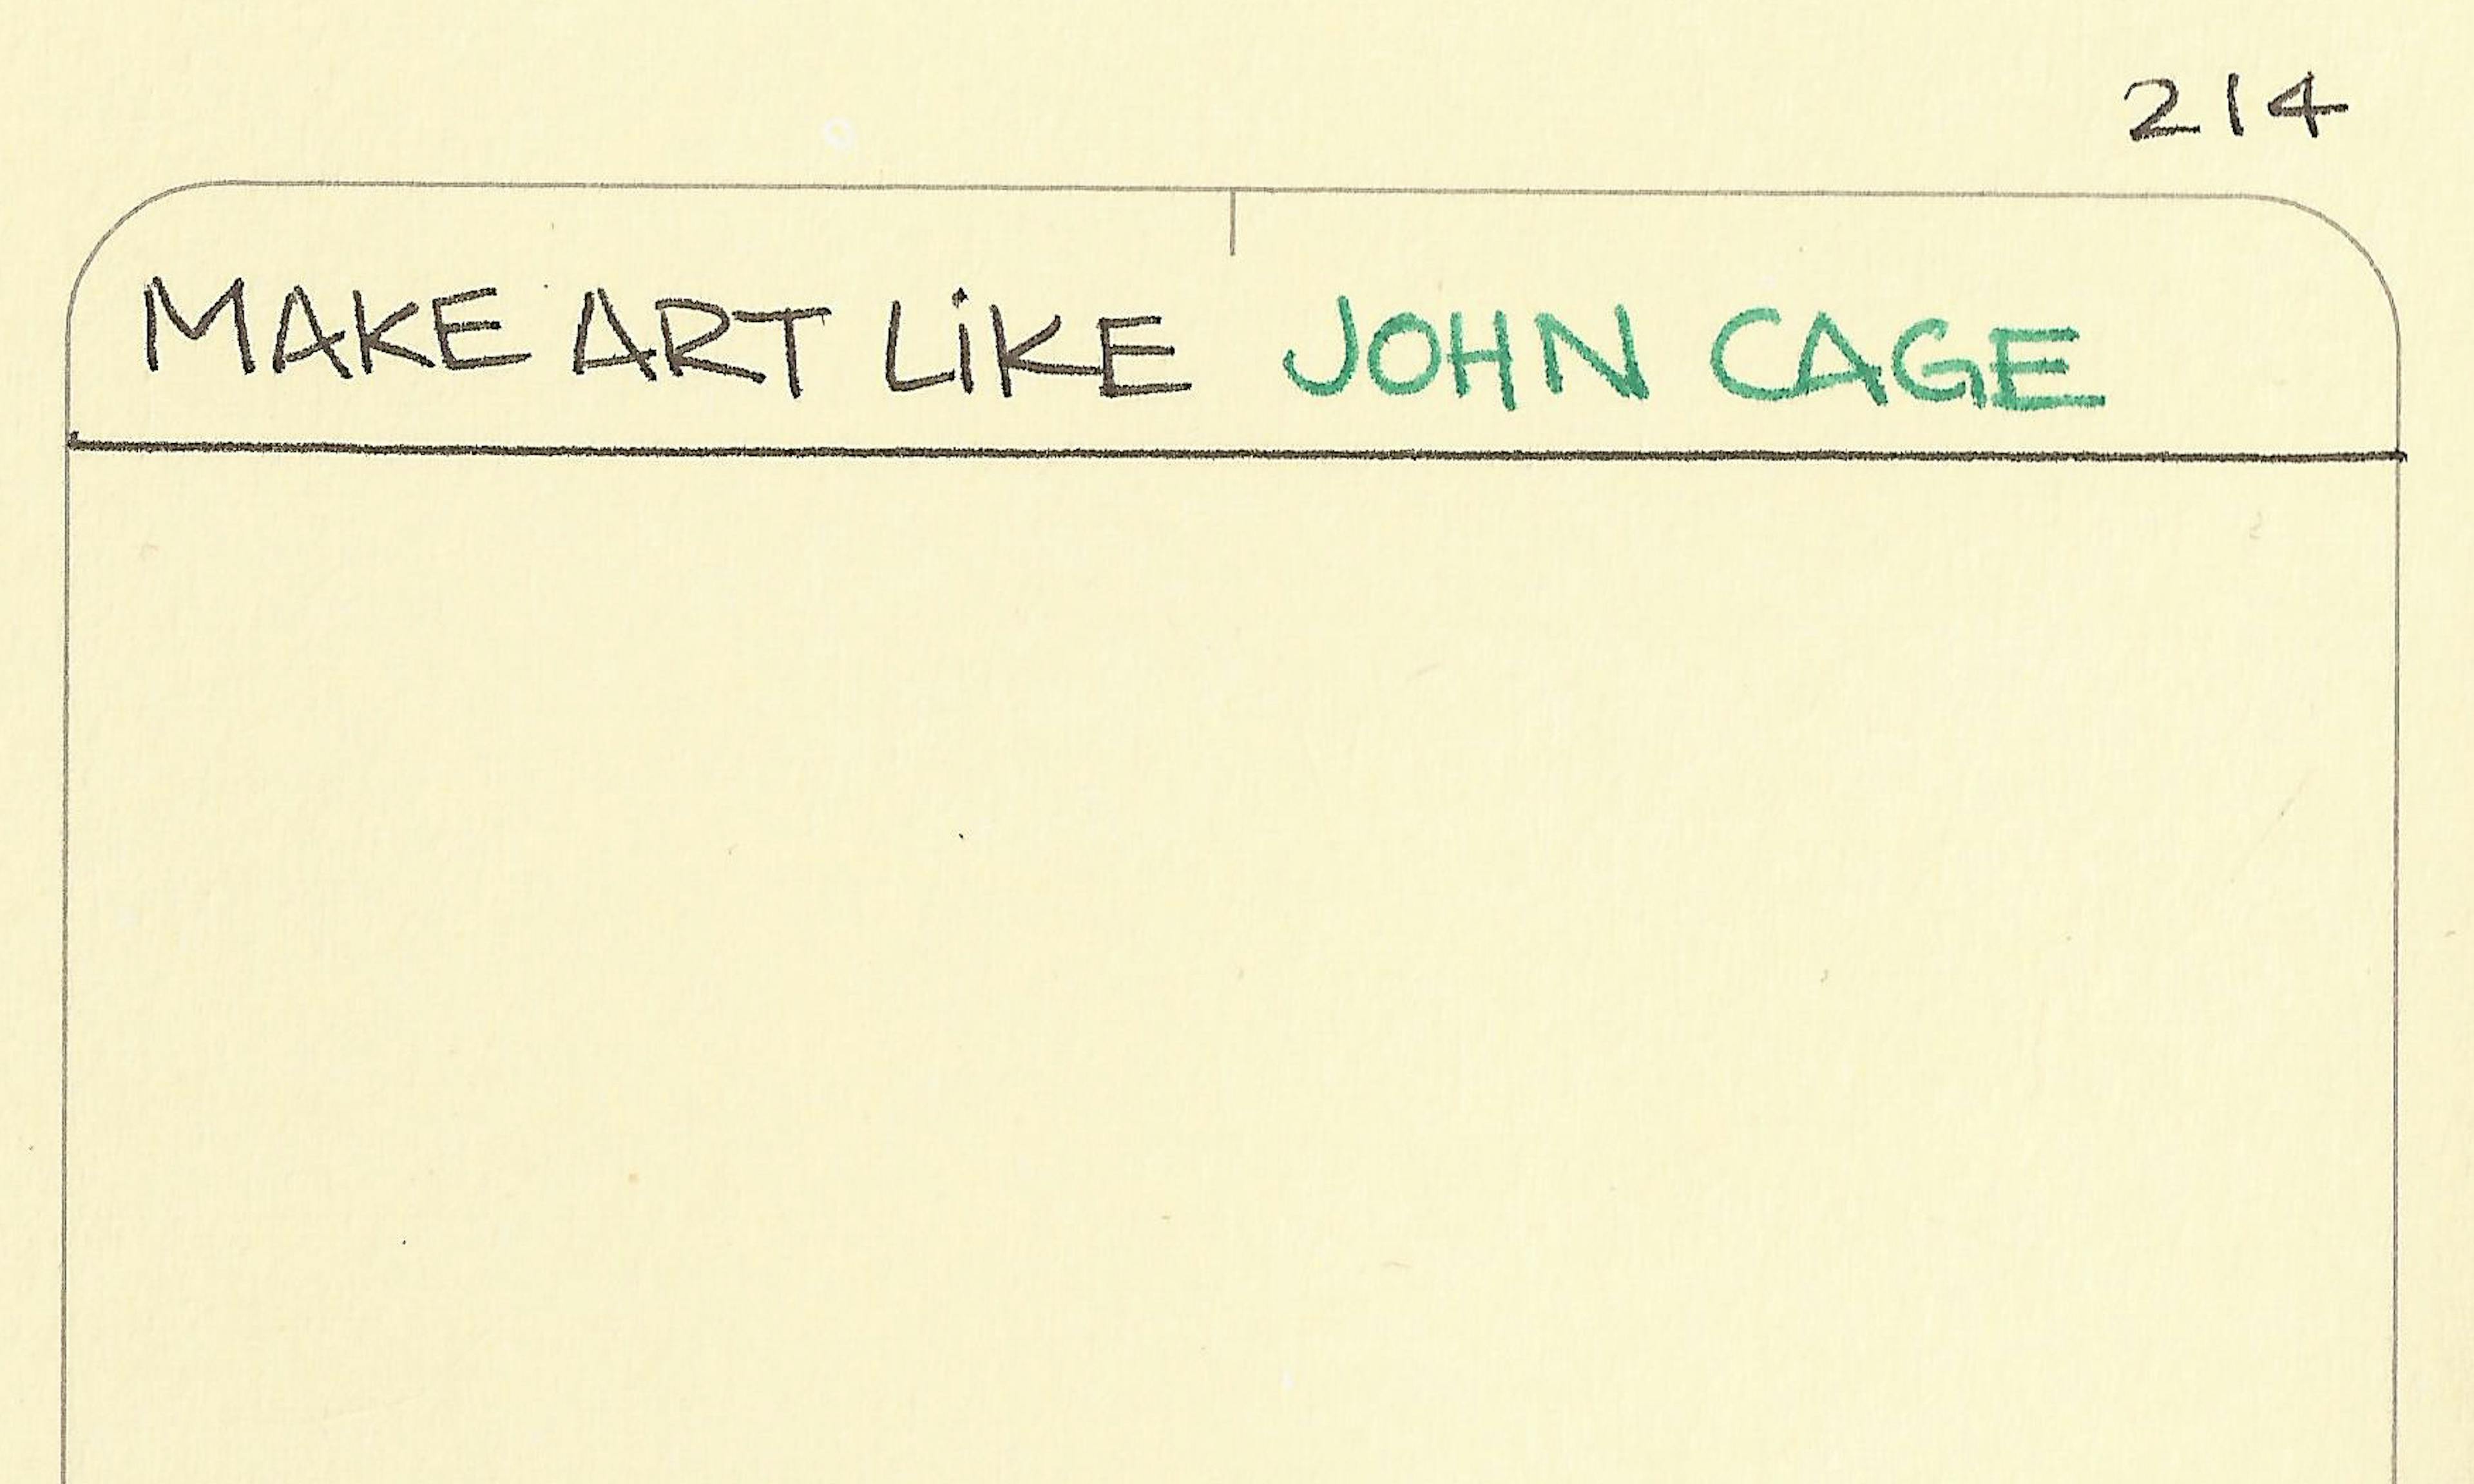 214
MAKE ART LiKE JOHN CAGE